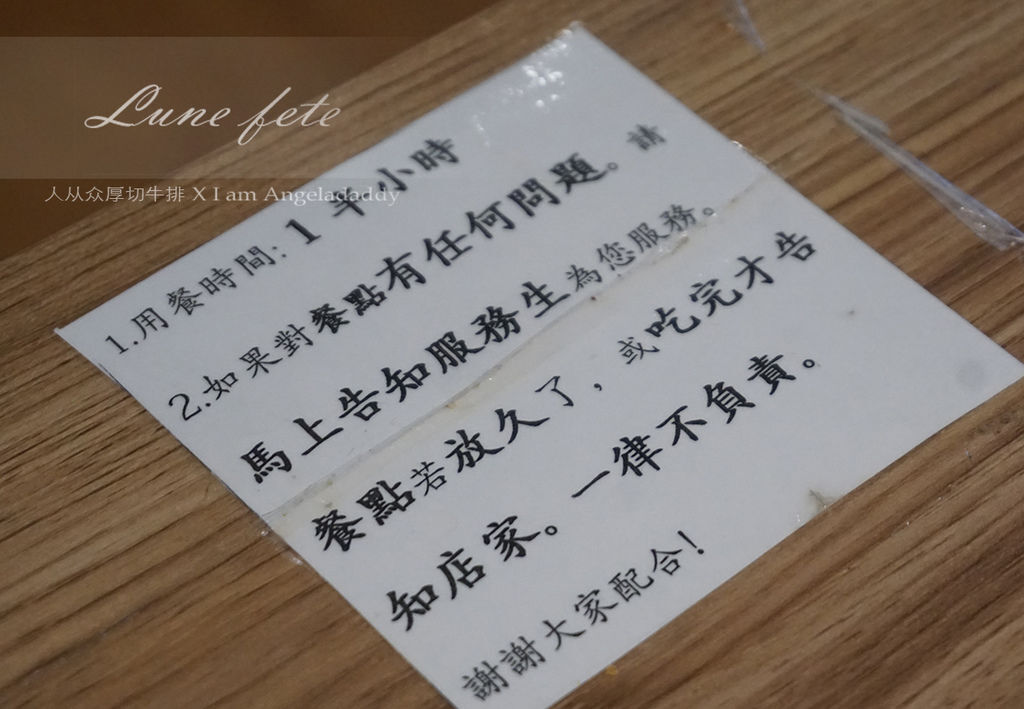 Lune fete
人从众厚切牛排 X I am Angeladaddy
1.用餐時間：1 半小時
2.如果對餐點有任何問題。請
馬上告知服務生為您服務。
餐點若放久了，或吃完才告
知店家。一律不負責。
謝謝大家配合！